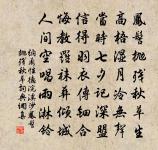 鳳髻拋殘秋草生
高梧濕月冷無聲
當時七夕記深盟
信得羽衣傳鈿合
悔教羅襪葬傾城
人間空唱雨淋鈴
納蘭性德浣溪沙鳳髻
拋殘秋草生詞